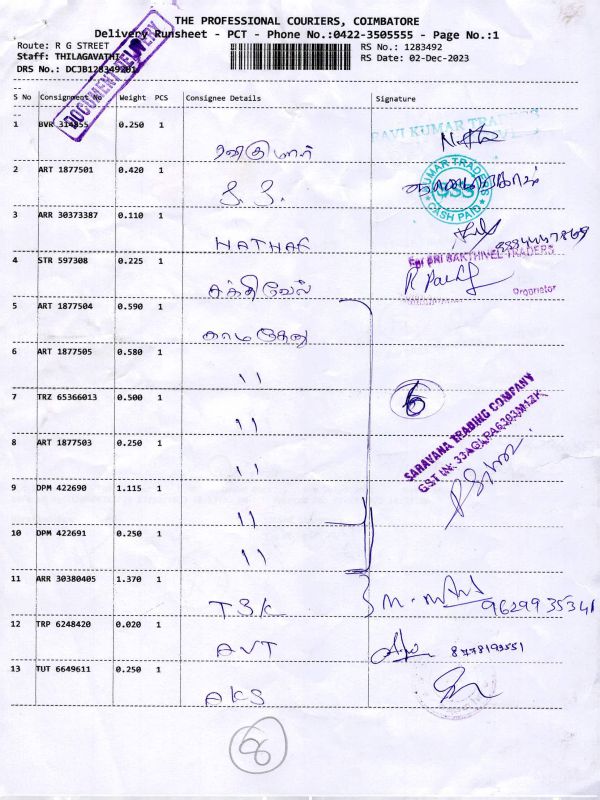 THE PROFESSIONAL COURIERS, COIMBATORE
Delivery Runsheet - PCT - Phone No.:0422-3505555 - Page No.:1
Route: R G STREET
RS No.: 1283492
Staff: THILAGAVATHI
RS Date: 02-Dec-2023
DRS No.: DCJB128349201
DOCUMENT DELIVERY
S No Consignment No Weight PCS Consignee Details Signature
1 BVR 0.250 1
RAVI KUMAR TRADERS
2 ART 1877501 0.420 1 S. S.
KUMAR TRADERS
CASH PAID
3 ARR 30373387 0.110 1 NATHAN
For SRI SAKTHIVEL TRADERS
4 STR 597308 0.225 1 சக்திவேல்
Proprietor
5 ART 1877504 0.590 1 காமதேனு
6 ART 1877505 0.580 1 ı ı
7 TRZ 65366013 0.500 1 ı ı
6
SARAVANA TRADING COMPANY
8 ART 1877503 0.250 1 ı ı
9 DPM 422690 1.115 1 ı ı
10 DPM 422691 0.250 1 ı ı
11 ARR 30380405 1.370 1 TSK M. Mani 9629935341
12 TRP 6248420 0.020 1 AVT
13 TUT 6649611 0.250 1 AKS